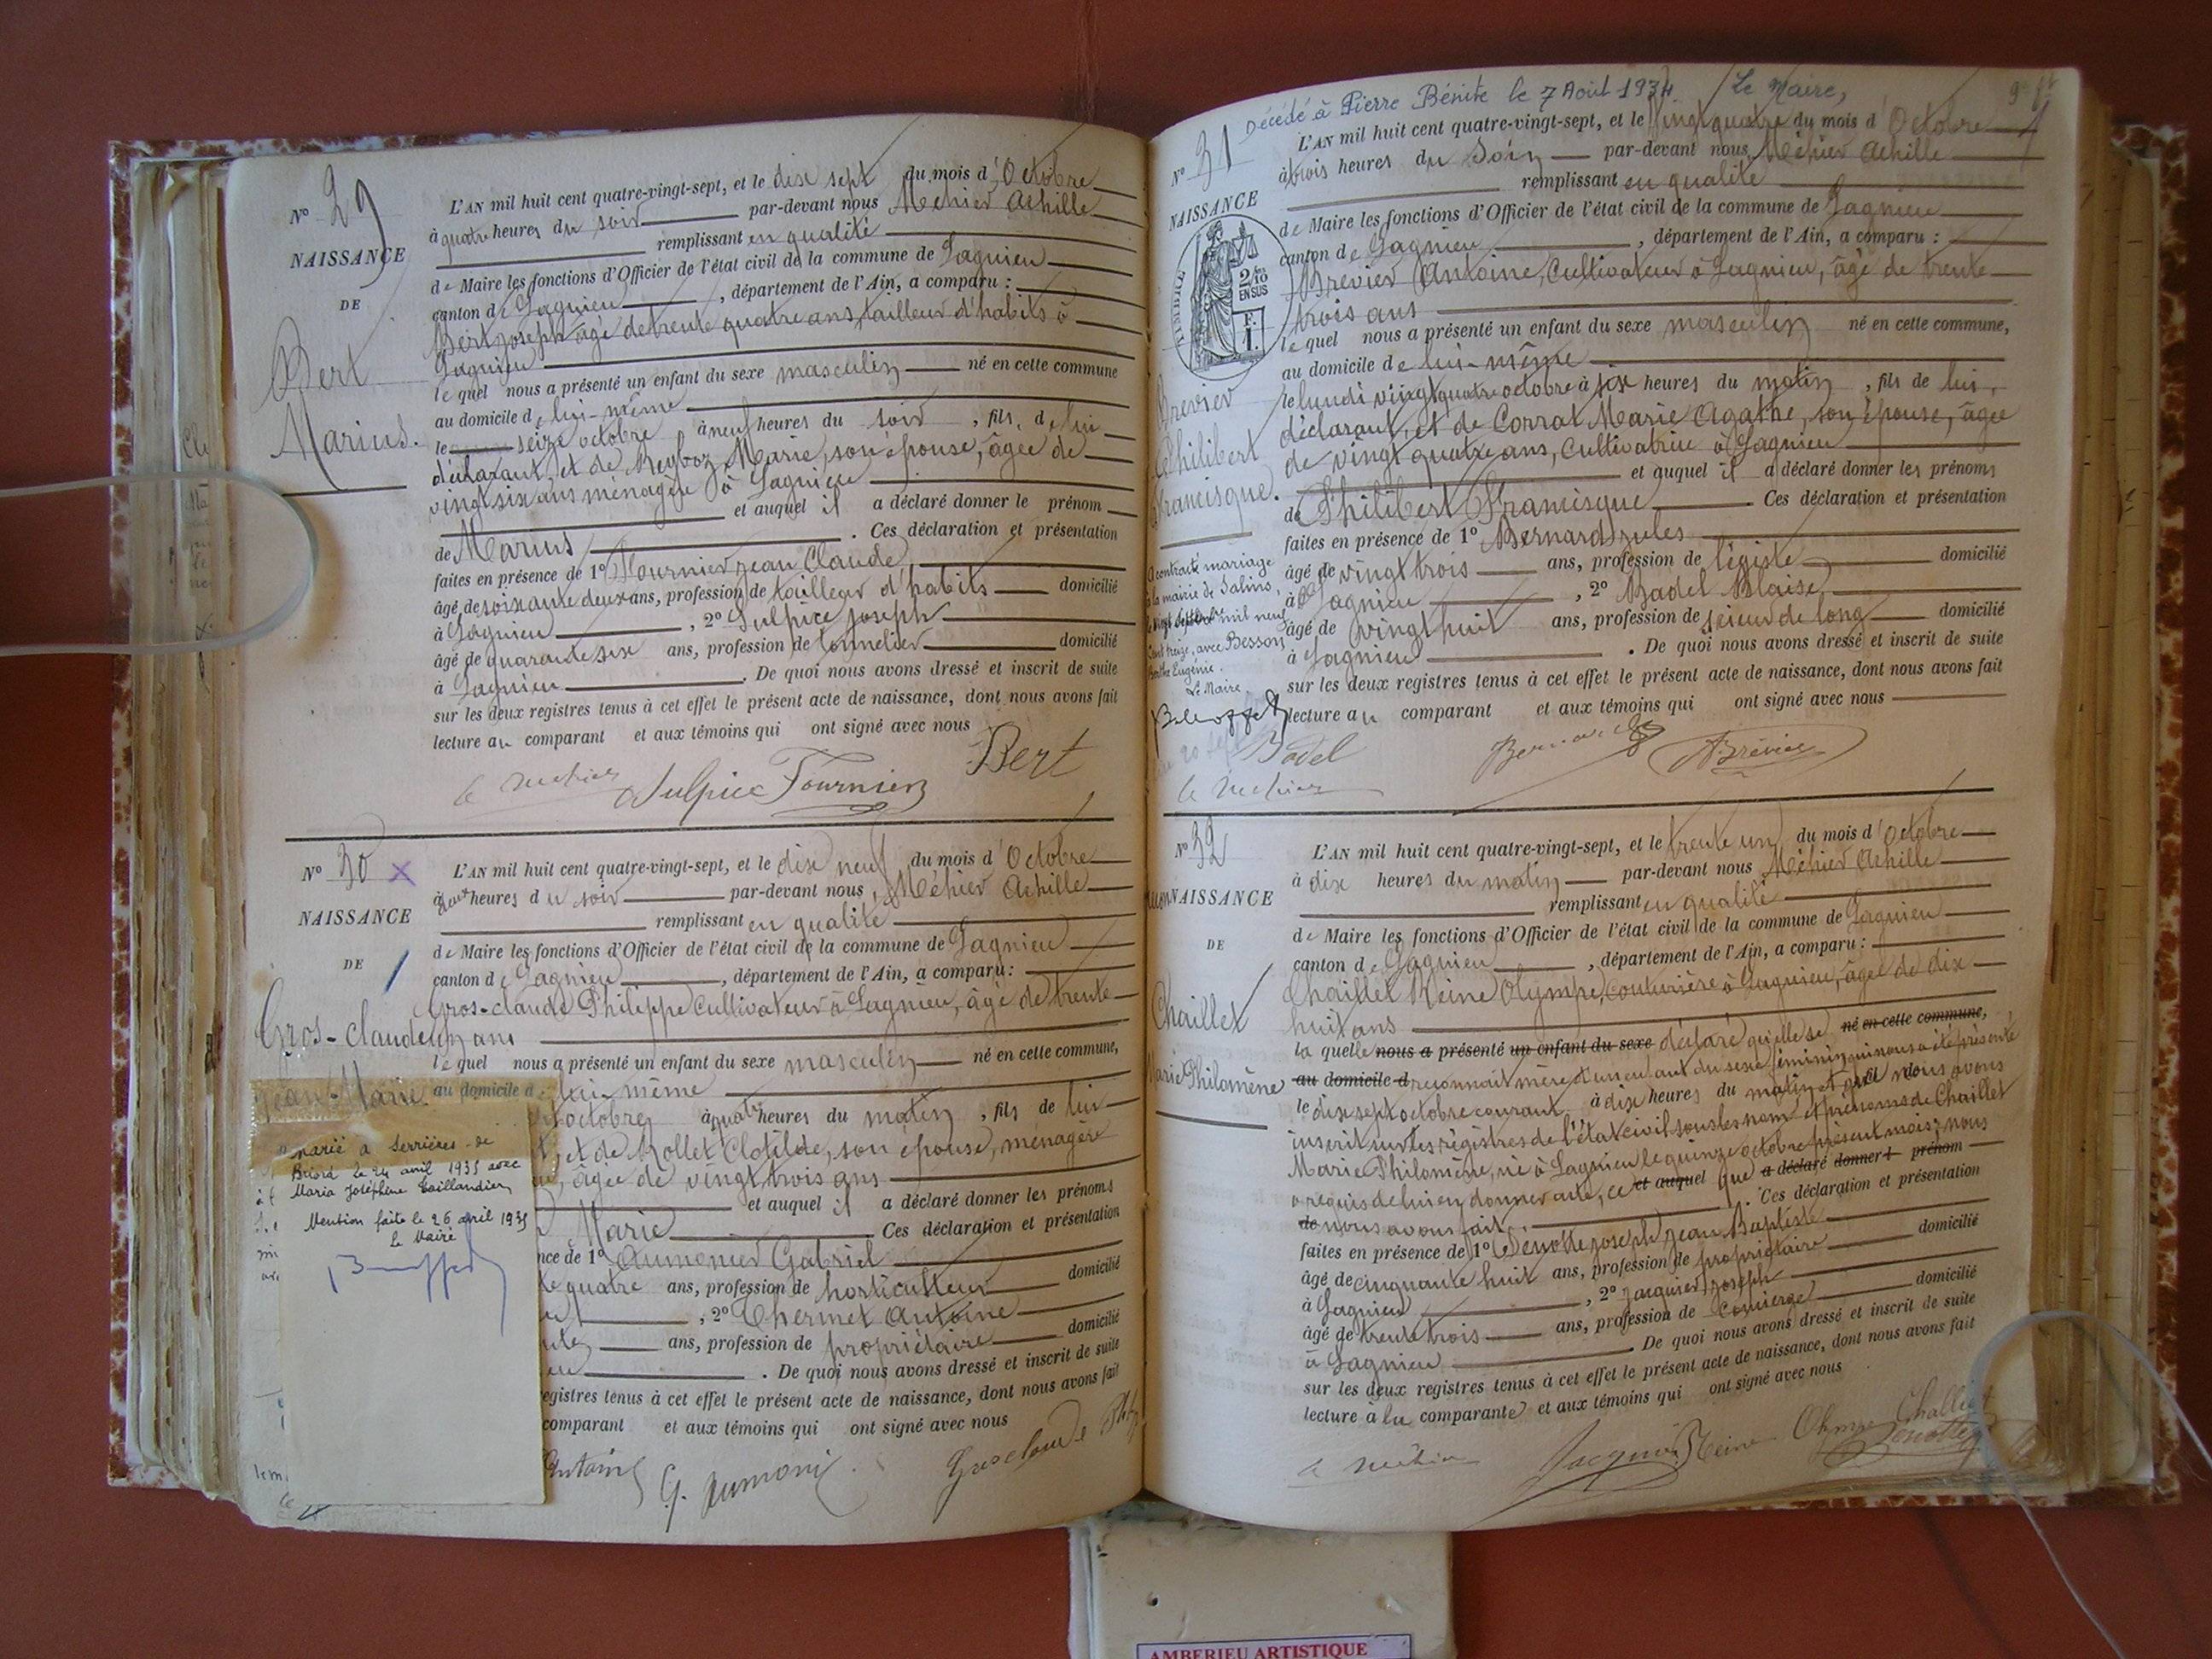 Nº 29
NAISSANCE
DE
Bert
Marius.
L'AN mil huit cent quatre-vingt-sept, et le dix sept du mois d'Octobre
à quatre heures du soir par-devant nous Méhier Achille
remplissant en qualité
de Maire les fonctions d'Officier de l'état civil de la commune de Lagnieu
canton de Lagnieu, département de l'Ain, a comparu :
Bert Joseph âgé de trente quatre ans, tailleur d'habits à
Lagnieu
le quel nous a présenté un enfant du sexe masculin né en cette commune
au domicile de lui-même
le seize octobre à neuf heures du soir, fils de lui
déclarant, et de Marie, son épouse, âgée de
vingt six ans ménagère à Lagnieu
et auquel il a déclaré donner le prénom
de Marius. Ces déclaration et présentation
faites en présence de 1º Fournier Jean Claude
âgé de soixante deux ans, profession de tailleur d'habits domicilié
à Lagnieu, 2º Sulpice Joseph
âgé de quarante six ans, profession de tonnelier domicilié
à Lagnieu. De quoi nous avons dressé et inscrit de suite
sur les deux registres tenus à cet effet le présent acte de naissance, dont nous avons fait
lecture au comparant et aux témoins qui ont signé avec nous
Bert
Sulpice Fournier
Nº 30 X
NAISSANCE
DE
Gros-claude
Jean-Marie
L'AN mil huit cent quatre-vingt-sept, et le dix neuf du mois d'Octobre
à heures du soir par-devant nous, Méhier Achille
remplissant en qualité
de Maire les fonctions d'Officier de l'état civil de la commune de Lagnieu
canton de Lagnieu, département de l'Ain, a comparu :
Gros-claude Philippe Cultivateur à Lagnieu, âgé de trente
un ans
le quel nous a présenté un enfant du sexe masculin né en cette commune,
au domicile d lui même
octobre à quatre heures du matin, fils de lui
et de Rollet Clotilde, son épouse, ménagère
âgée de vingt trois ans
et auquel il a déclaré donner les prénoms
Marie Ces déclaration et présentation
nce de 1º Aumonier Gabriel
te quatre ans, profession de horticulteur domicilié
, 2º Chermet Antoine
ans, profession de propriétaire domicilié
. De quoi nous avons dressé et inscrit de suite
egistres tenus à cet effet le présent acte de naissance, dont nous avons fait
comparant et aux témoins qui ont signé avec nous
marié à Serrières-de
Briord le 24 avril 1935 avec
Maria Joséphine Taillandier
Mention faite le 26 avril 1935
Le Maire
Antoine G. Aumonier Grosclaude
Décédé à Pierre Bénite le 7 Août 1934 Le Maire,
Nº 31
NAISSANCE
TIMBRE
2/10
EN SUS
F.
1.
Brevier
Philibert
Francisque.
A contracté mariage
à la mairie de Salins,
le vingt septembre mil neuf
cent treize, avec Besson
Berthe Eugénie.
Le Maire,
L'AN mil huit cent quatre-vingt-sept, et le Vingt quatre du mois d'Octobre
à trois heures du Soir par-devant nous Méhier Achille
remplissant en qualité
de Maire les fonctions d'Officier de l'état civil de la commune de Lagnieu
canton de Lagnieu, département de l'Ain, a comparu :
Brevier Antoine, Cultivateur à Lagnieu, âgé de trente
trois ans
le quel nous a présenté un enfant du sexe masculin né en cette commune,
au domicile de lui-même
le lundi vingt quatre octobre à six heures du matin, fils de lui,
déclarant, et de Corrat Marie Agathe, son épouse, âgée
de vingt quatre ans, Cultivatrice à Lagnieu
et auquel il a déclaré donner les prénoms
de Philibert Francisque. Ces déclaration et présentation
faites en présence de 1º Bernard Jules
âgé de vingt trois ans, profession de légiste domicilié
à Lagnieu, 2º Badel Blaise
âgé de vingt huit ans, profession de scieur de long domicilié
à Lagnieu. De quoi nous avons dressé et inscrit de suite
sur les deux registres tenus à cet effet le présent acte de naissance, dont nous avons fait
lecture au comparant et aux témoins qui ont signé avec nous
Badel Bernard Brévier
Nº 32
NAISSANCE
DE
Chaillet
Marie Philomène
L'AN mil huit cent quatre-vingt-sept, et le trente un du mois d'Octobre
à dix heures du matin par-devant nous Méhier Achille
remplissant en qualité
de Maire les fonctions d'Officier de l'état civil de la commune de Lagnieu
canton de Lagnieu, département de l'Ain, a comparu :
Chaillet Reine Olympe, couturière à Lagnieu, âgée de dix
huit ans
la quelle nous a présenté un enfant du sexe déclaré qu'elle se né en cette commune,
au domicile d reconnait mère d'un enfant du sexe féminin qui nous a été présenté
le dix sept octobre courant à dix heures du matin et que nous avons
inscrit sur les registres de l'état civil sous les nom et prénoms de Chaillet
Marie Philomène, né à Lagnieu le quinze octobre présent mois; nous
a requis de lui en donner acte, ce et auquel que a déclaré donner prénom
de nous avons fait. Ces déclaration et présentation
faites en présence de 1º Denotte Joseph Jean Baptiste
âgé de cinquante huit ans, profession de propriétaire domicilié
à Lagnieu, 2º Jacquier Joseph
âgé de trente trois ans, profession de Concierge domicilié
à Lagnieu De quoi nous avons dressé et inscrit de suite
sur les deux registres tenus à cet effet le présent acte de naissance, dont nous avons fait
lecture à la comparante et aux témoins qui ont signé avec nous
Jacquier Reine Olympe Chaillet
Denotte
AMBERIEU ARTISTIQUE